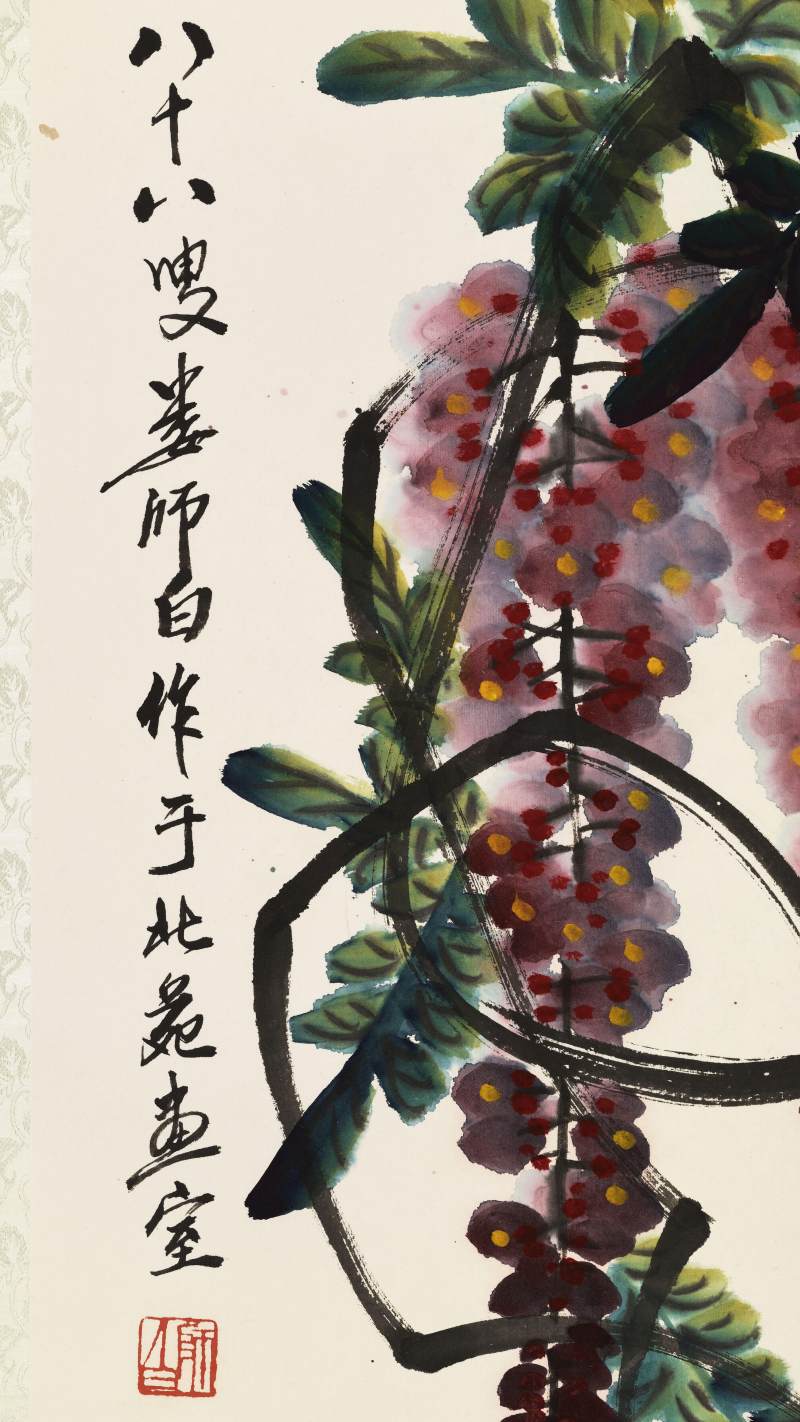 八十八叟娄师白作于北苑画室
师白